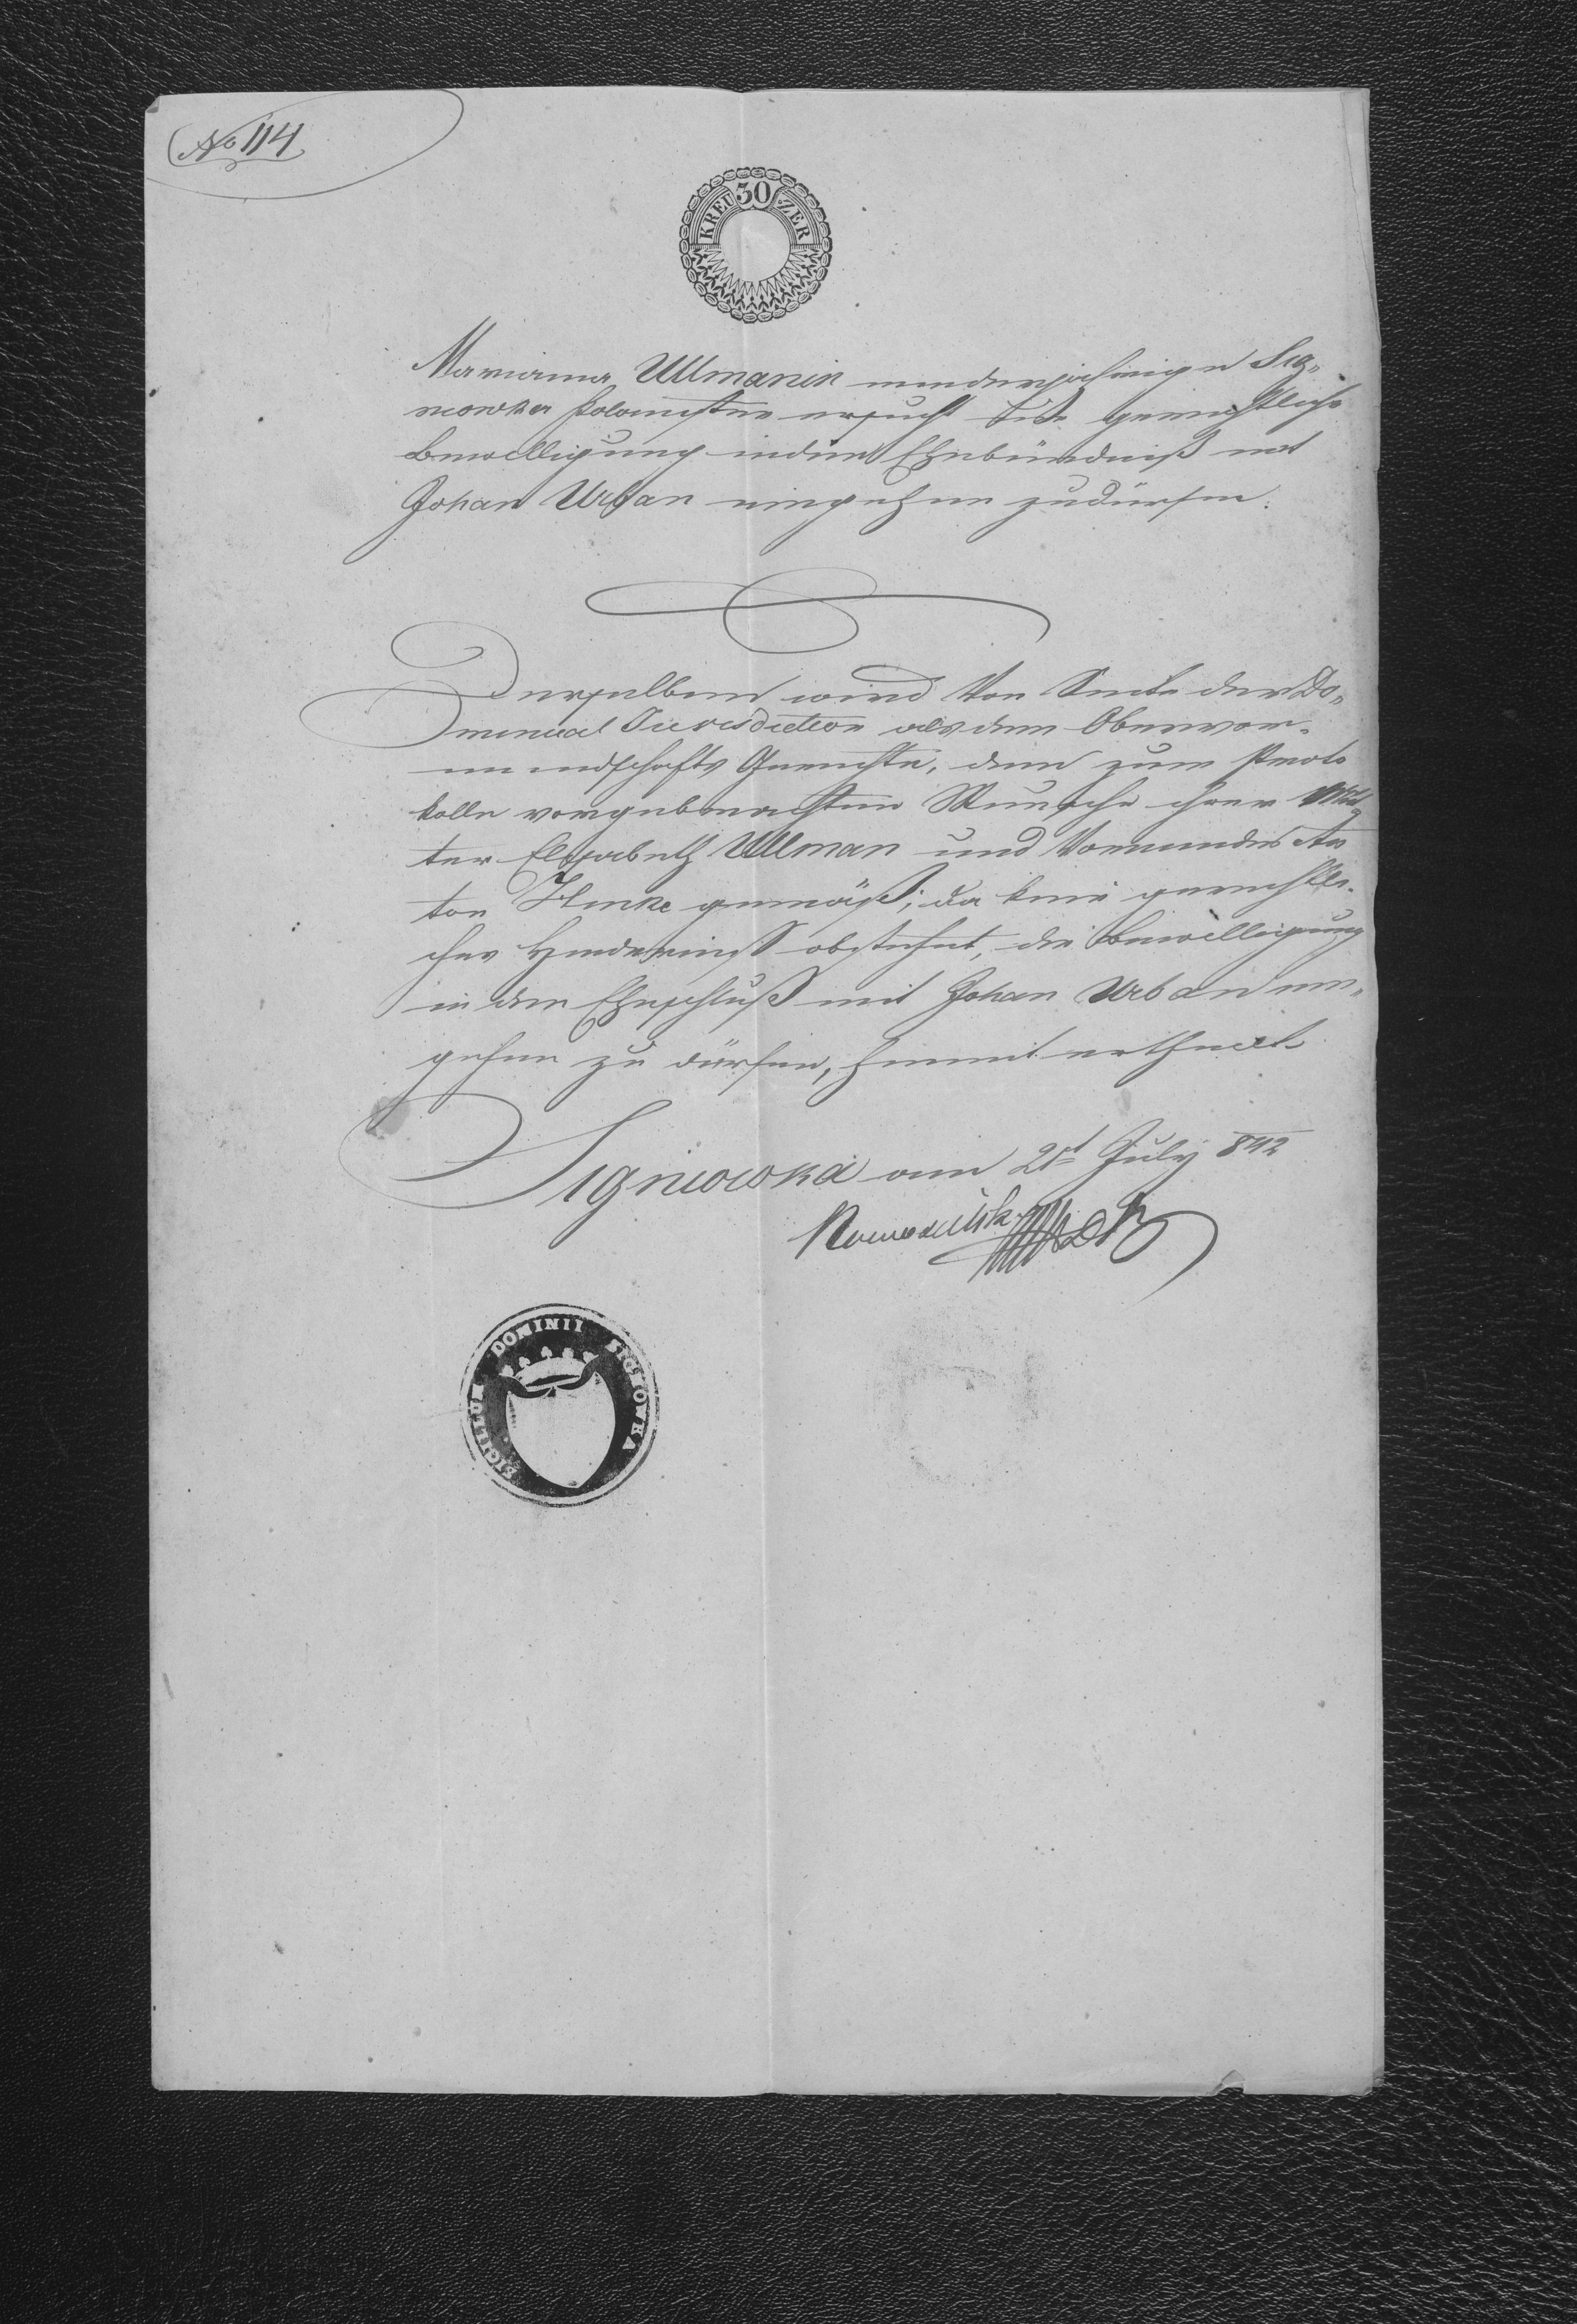 No 114
30
KREUZER
Marianna Ullmanin minderjährige Sig„
niowka Kolonistin ersucht die gerichtliche
Bewilligung in dem Ehebündniß mit
Johan Urban eingehen zu dürfen.
Derselben wird von Seite der Do„
minical Jurisdiction als dem Obervor„
mundschafts Gerichte, dem zum Proto
kolle vorgebrachten Wunsche ihrer Mut„
ter Elisabeth Ullman und Vormundes An
ton gemäß, da kein gerichtli„
ches Hinderniß obstehet, die Bewilligung
in den Eheschluß mit Johan Urban ein„
gehen zu dürfen, hiemit ertheilt
Signiowka am 21t July 842
SIGILLUM DOMINII SIGNIOWKA